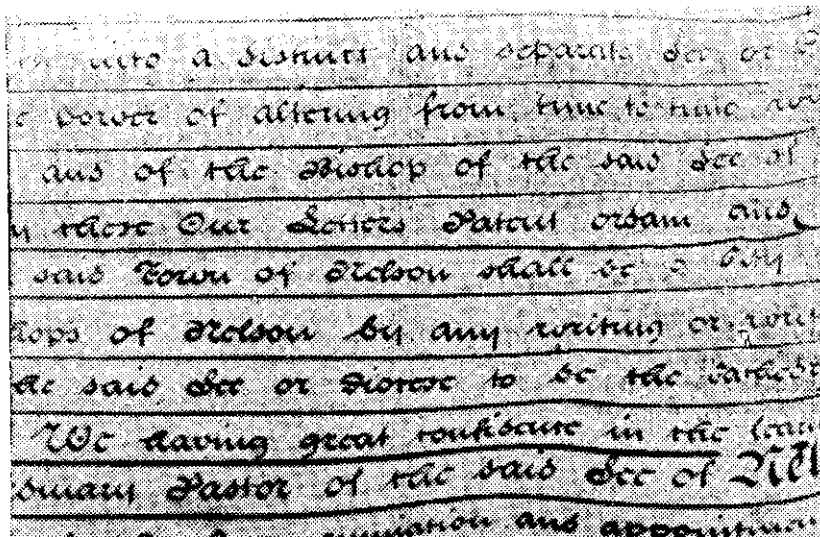 into a District and separate See or
power of altering from time to time
and of the Bishop of the said See of
these Our Letters Patent ordain and
said Town of Nelson shall be a
hops of Nelson by any writing or
the said See or Diocese to be the Cathedr
We having great confidence in the lear
ordinary Pastor of the said See of Nel
and appointmen